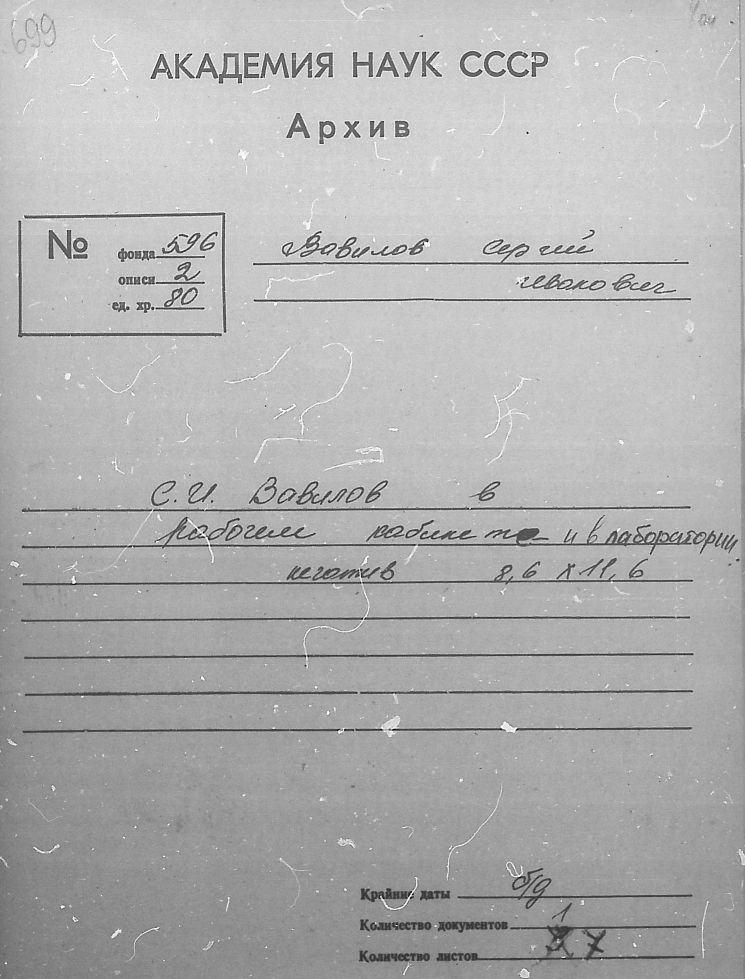 699
АКАДЕМИЯ НАУК СССР
Архив
№ фонда 596
описи 2
ед. хр. 80
Вавилов Сергей
Иванович
С.И. Вавилов в
рабочем кабинете и в лаборатории.
негатив 8,6 х 11,6
Крайние даты б/д
Количество документов 1
Количество листов 7